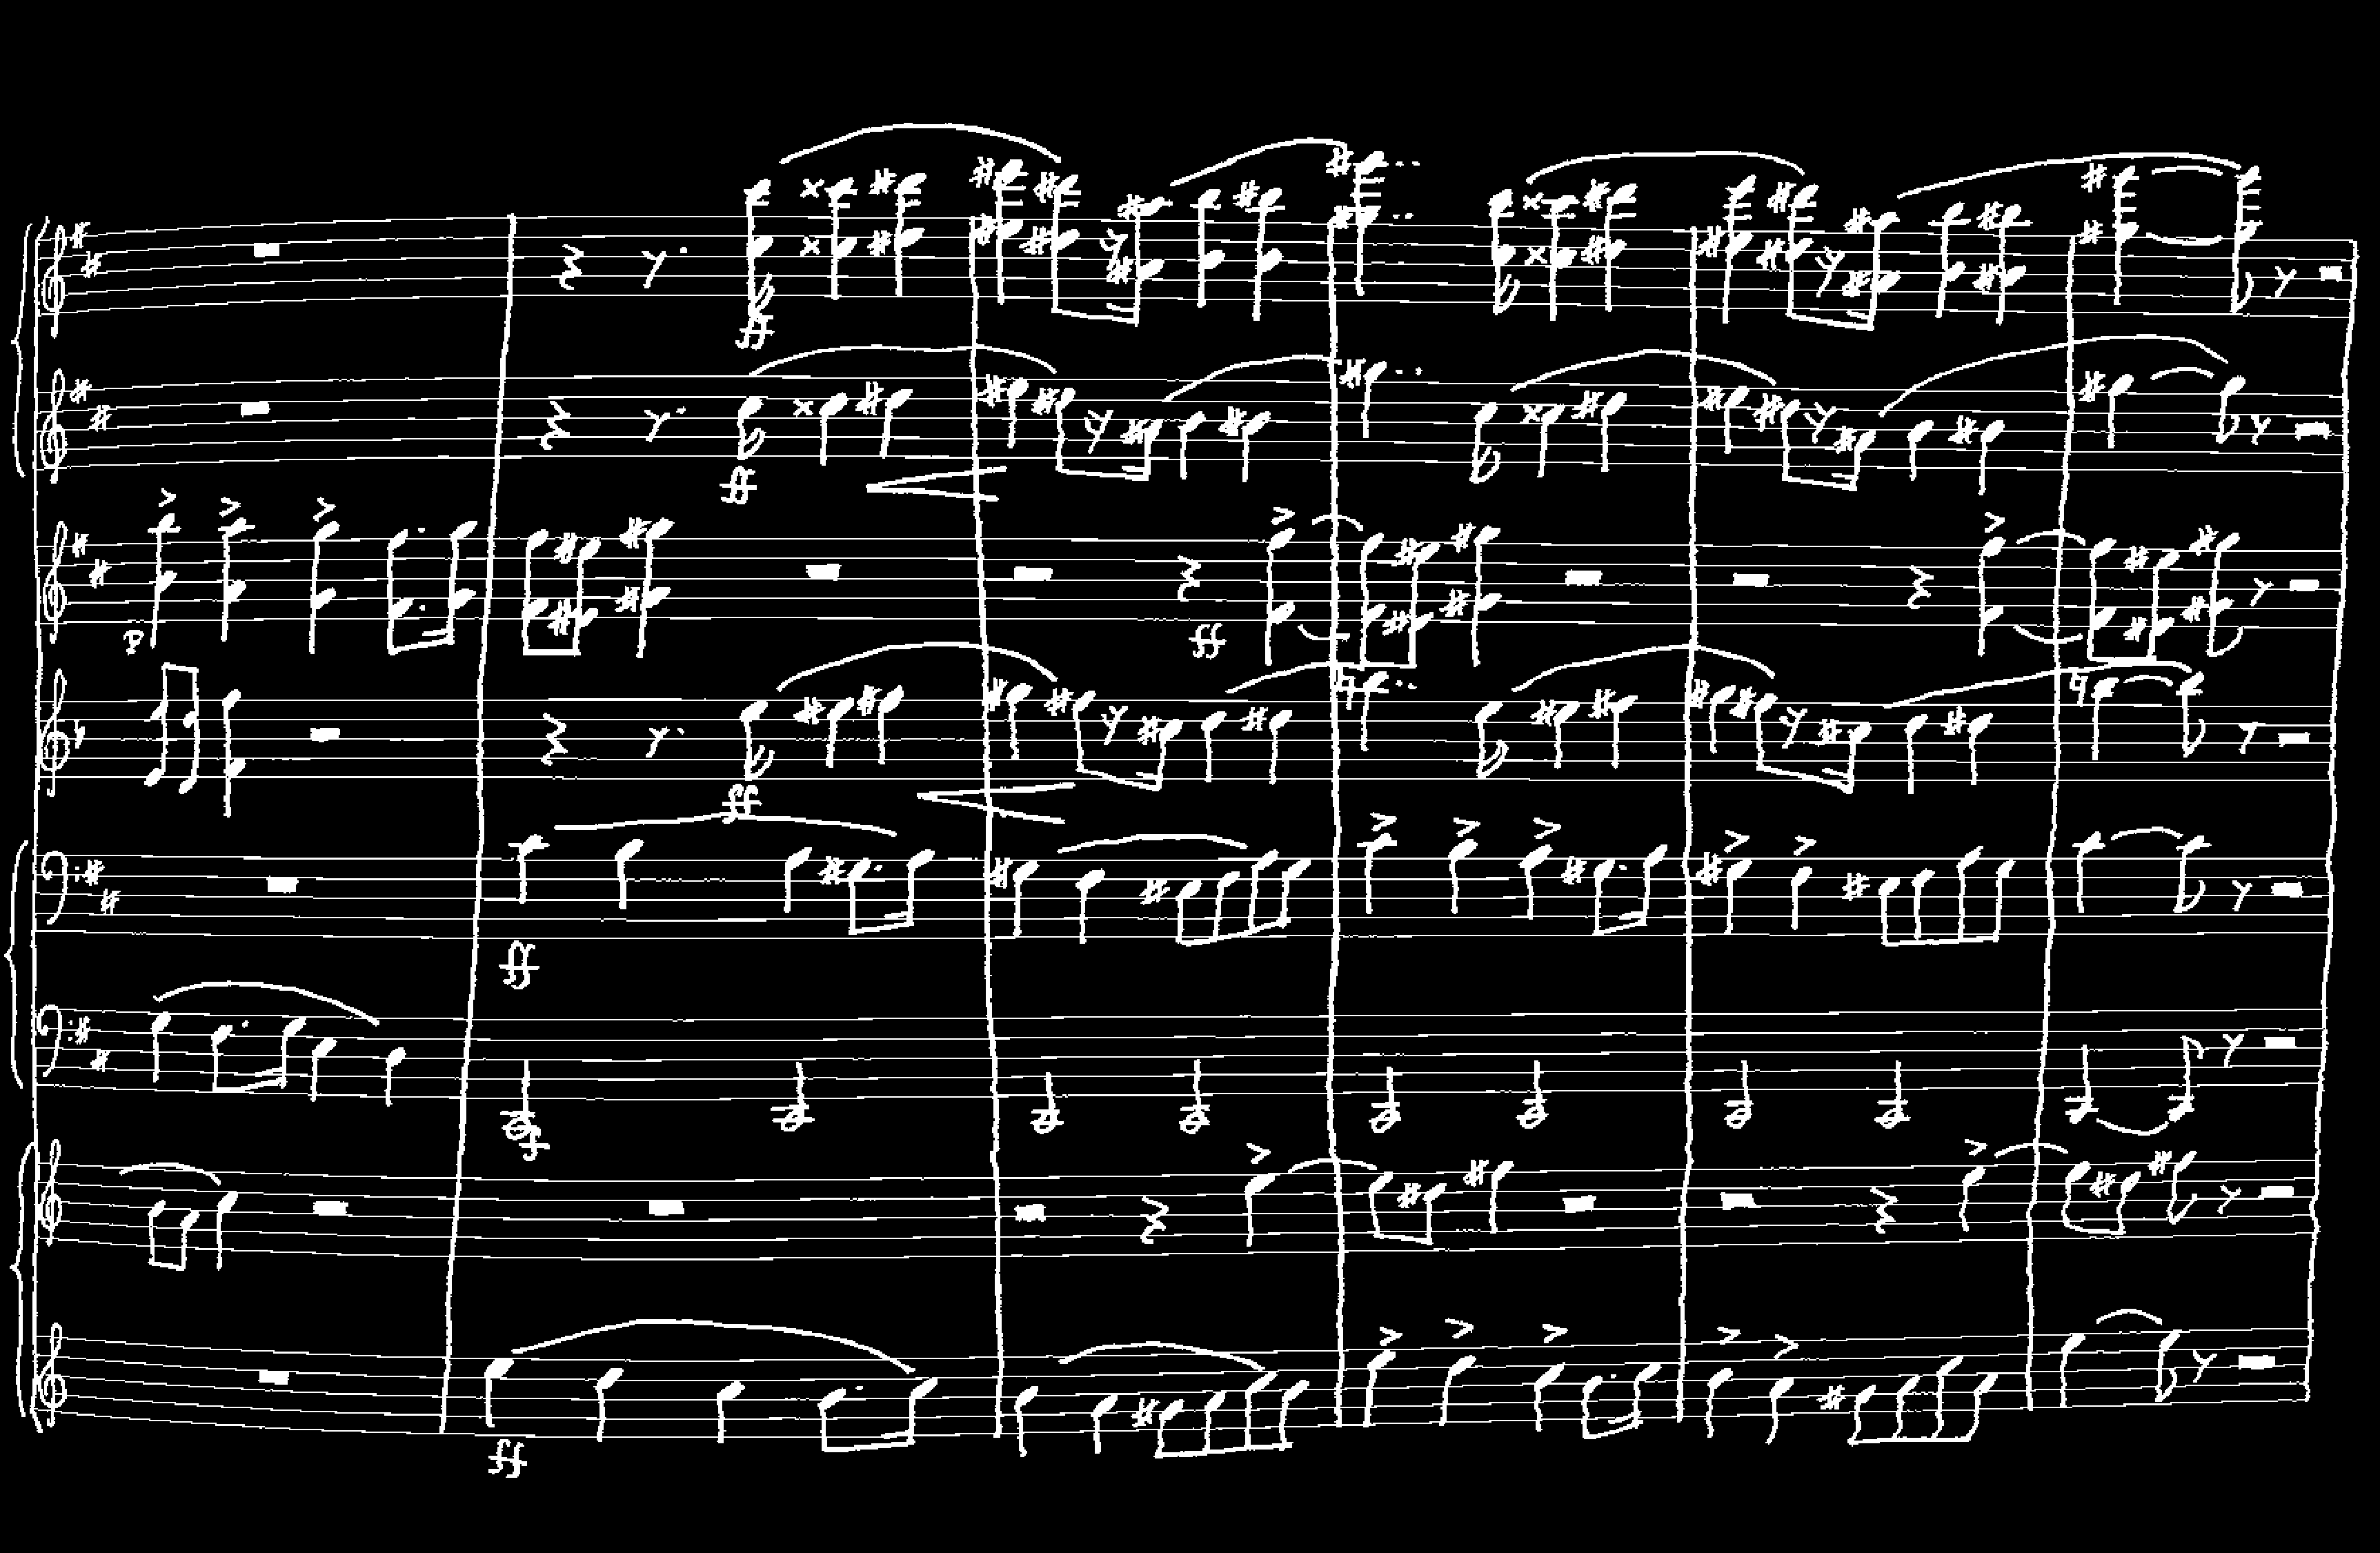 ff
ff
p
ff
ff
ff
f
ff